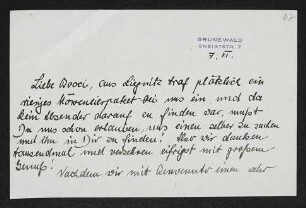 47
GRUNEWALD
7. VI.
Liebe Bosci, aus Liegnitz traf plötzlich ein
riesiges Löwentierpaket bei uns ein und da
kein Absender darauf zu finden war, mußt
Du uns schon erlauben, uns einen selber zu suchen
und ihn in Dir zu finden! Also wir danken
tausendmal und verzehren eifrigst mit großem
Genuß!
Nachdem wir mit Benvenuto einen sehr